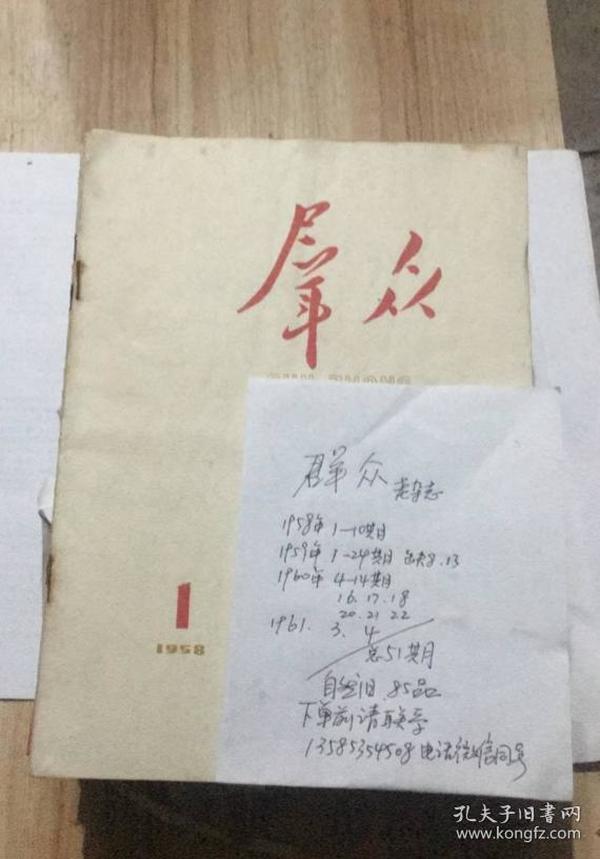 羣众
QUN ZHONG
群众 老杂志
1958年 1-10期
1959年 1-24期 缺8.13
1960年 4-14期
16.17.18
20.21 22
1961. 3. 4
总51期
自然旧 85品
下单前请联系
13585354508 电话微信同号
1
1958
孔夫子旧书网
www.kongfz.com